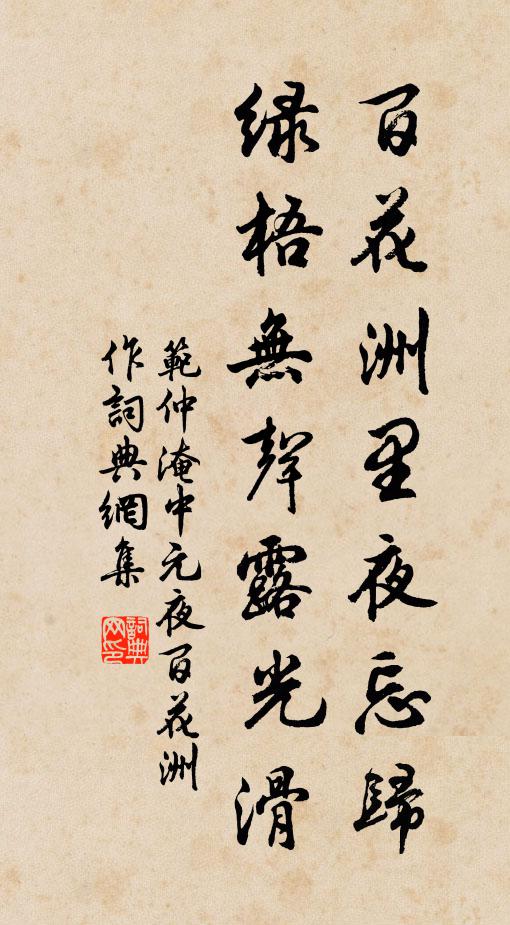 百花洲里夜忘歸
绿梧無聲露光滑
範仲淹中元夜百花洲
作詞典網集
詞典
网印